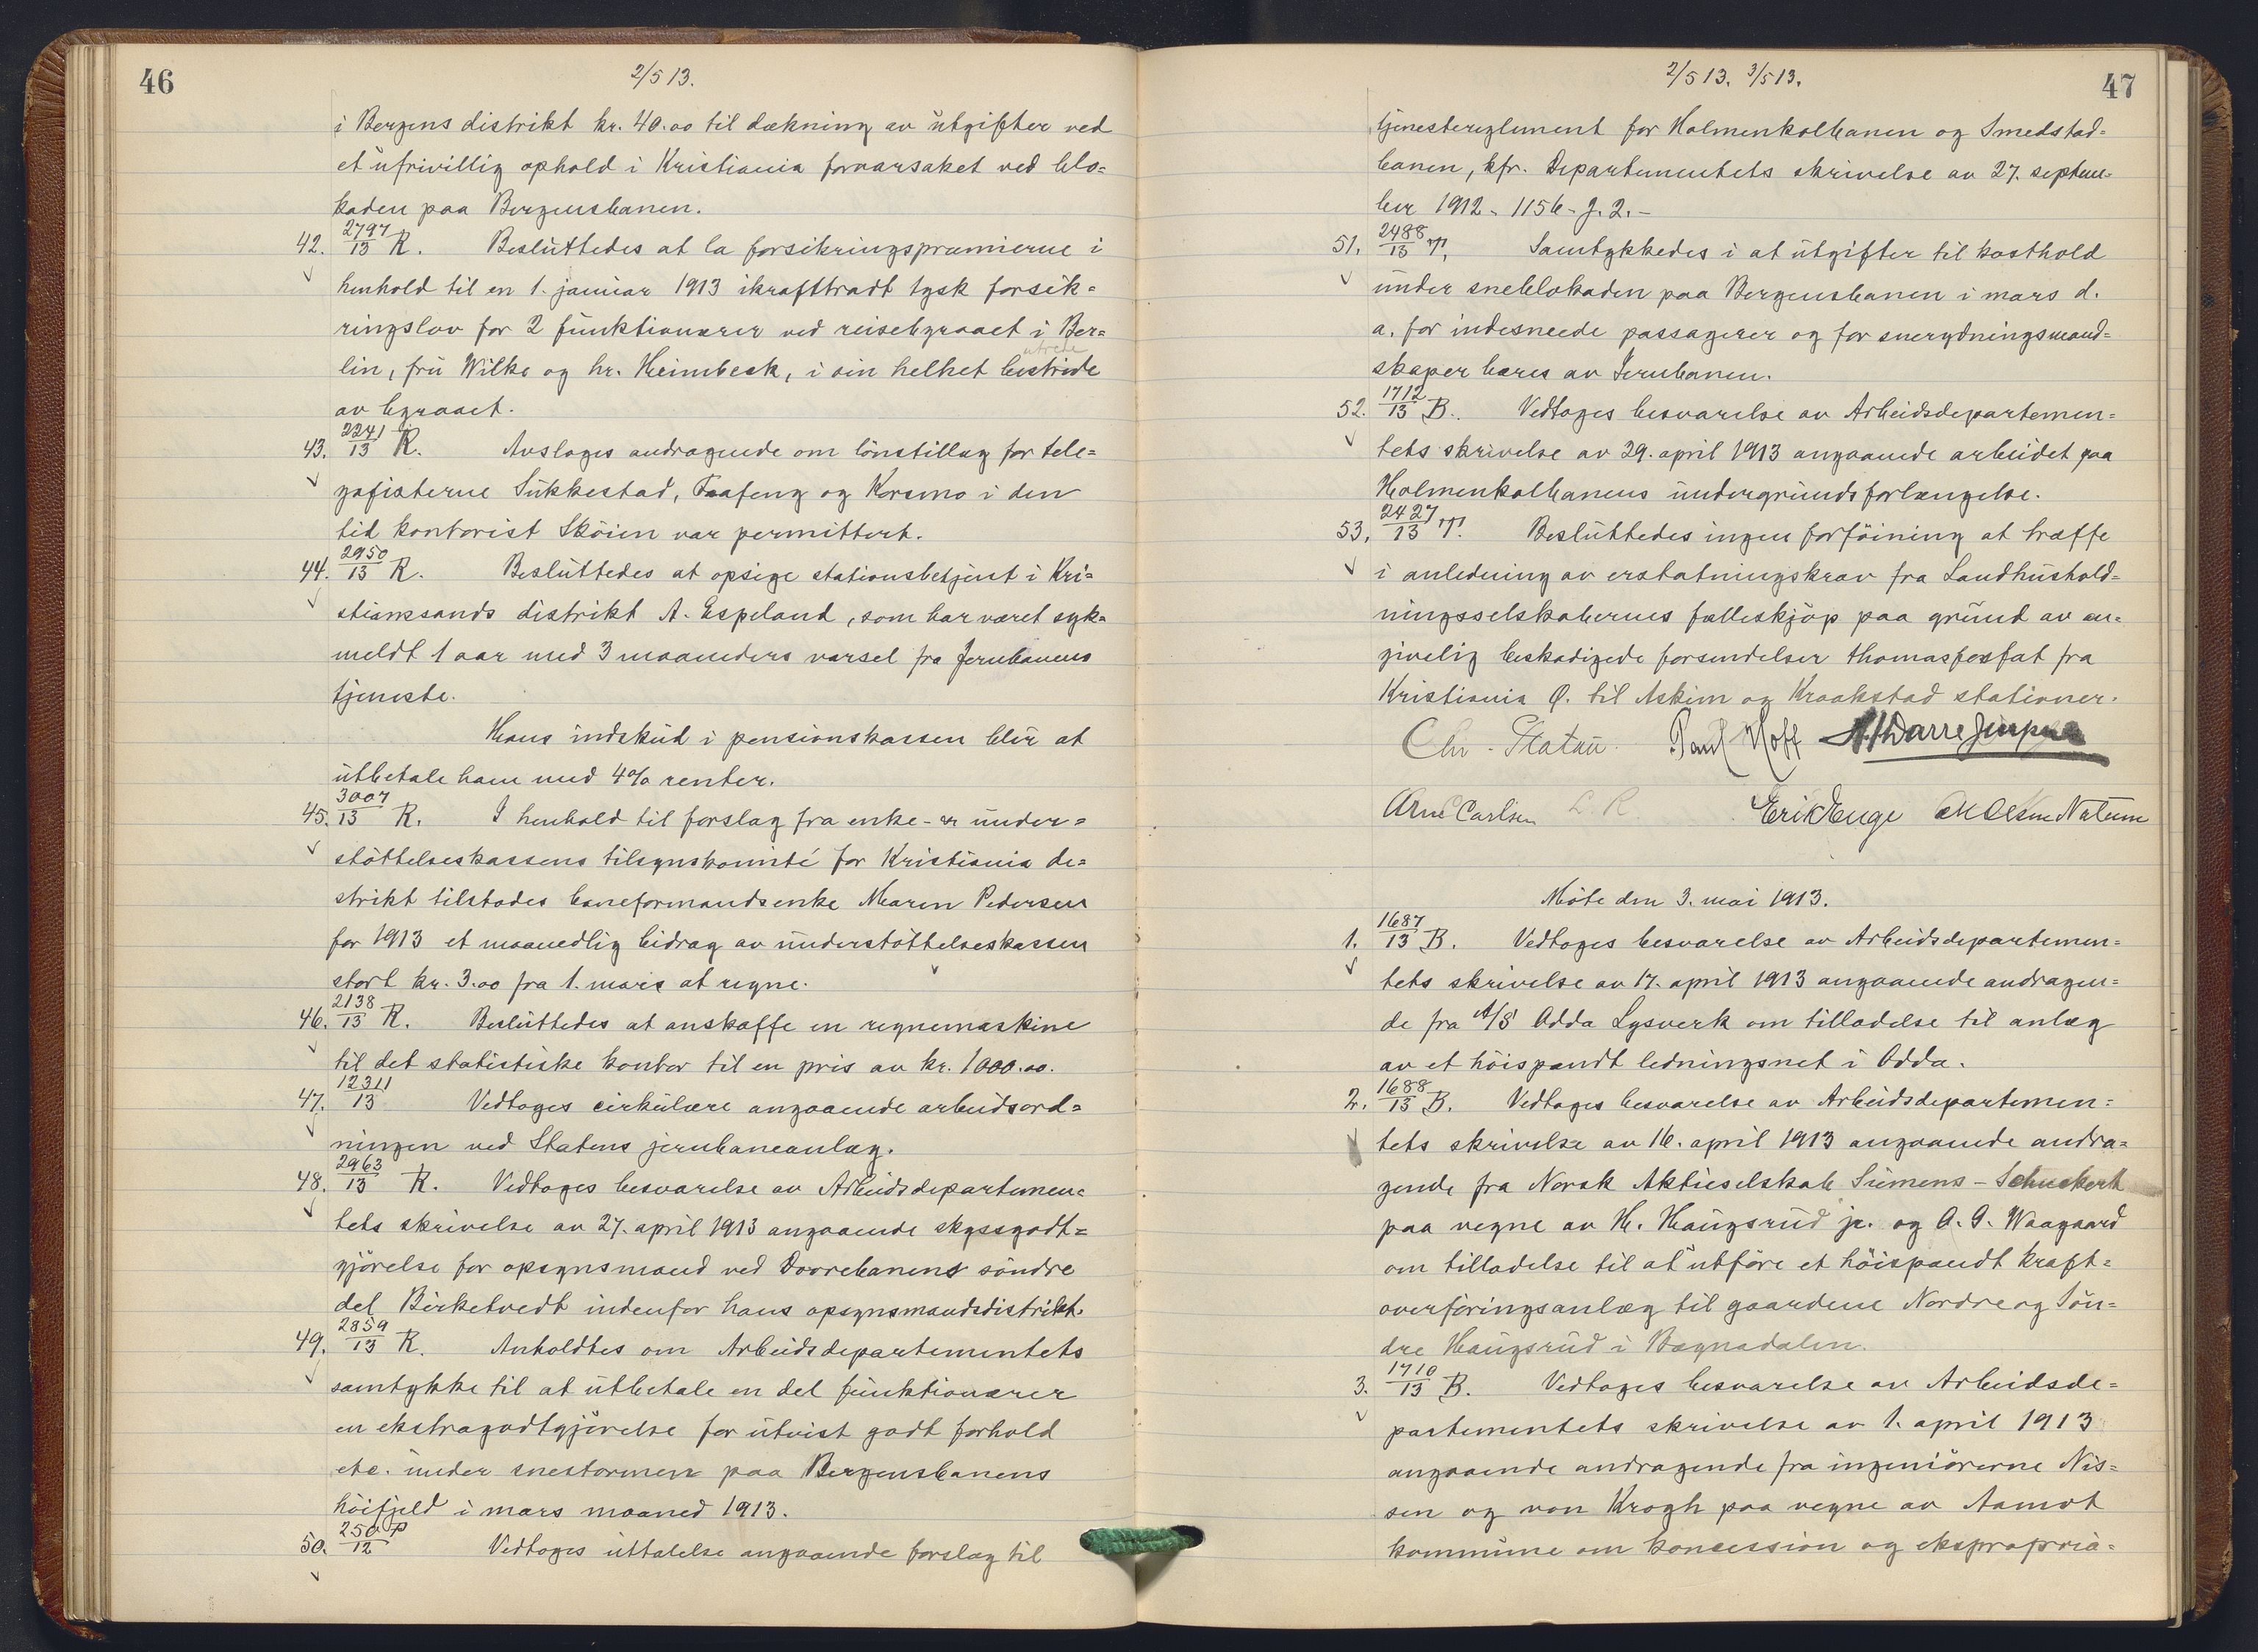 46
2/5 13.
i Bergens distrikt kr. 40.00 til dækning av utgifter ved
et ufrivillig ophold i Kristiania foraarsaket ved blo=
kaden paa Bergensbanen.
42. 2797/13 R. Besluttedes at la forsikringspræmierne i
henhold til en 1. januar 1913 ikrafttradt tysk forsik=
ringslov for 2 funktionærer ved reisebyraaet i Ber=
utrede
lin, frü Wilke og hr. Heimbeck, i sin helhet bestride
av byraaet.
43. 2241/13 R. Avsloges andragende om lönstillæg for tele=
gafisterne Sukkestad, Faafeng og Korsmo i den
tid kontorist Sköien var permittert.
44. 2950/13 R. Besluttedes at opsige stationsbetjent i Kri=
stianssands distrikt A. Espeland, som har været syk=
meldt 1 aar med 3 maaneders varsel fra Jernbanens
tjeneste.
Hans indskud i pensionskassen blir at
utbetale ham med 4% renter.
45. 3007/13 R. I henhold til forslag fra enke- og under=
støttelseskassens tilsynskomité for Kristiania di=
strikt tilstodes baneformandsenke Maren Pedersen
for 1913 et maanedlig bidrag av understöttelseskassen
stort kr. 3.00 fra 1. mars at regne.
46. 2138/13 R. Besluttedes at anskaffe en regnemaskine
til det statistiske kontor til en pris av kr. 1000.00.
47. 12311/13 Vedtoges cirkulære angaaende arbeidsord=
ningen ved Statens jernbaneanlæg.
48. 2963/13 R. Vedtoges besvarelse av Arbeidsdepartemen=
tets skrivelse av 27. april 1913 angaaende skyssgodt=
gjörelse for opsynsmand ved Dovrebanens söndre
del Birketvedt indenfor hans opsynsmandsdistrikt.
49. 2859/13 R. Anholdtes om Arbeidsdepartementets
samtykke til at utbetale en del funktionærer
en ekstragodtgjörelse for utvist godt forhold
etc. under snestormen paa Bergensbanens
höifjeld i mars maaned 1913.
50. 250 P/12 Vedtoges uttalelse angaaende forslag til
2/5 13. 3/5 13.
47
tjenestereglement for Holmenkolbanen og Smedstad=
banen, kfr. Departementets skrivelse av 27. septem=
ber 1912 - 1156 - J. 2. -
51. 2488/13 T. Samtykkedes i at utgifter til kosthold
under sneblokaden paa Bergensbanen i mars d.
a. for indesneede passagerer og for snerydningsmand=
skaper bæres av Jernbanen.
52. 1712/13 B. Vedtoges besvarelse av Arbeidsdepartemen=
tets skrivelse av 29. april 1913 angaaende arbeidet paa
Holmenkolbanens undergrundsforlængelse.
53. 2427/13 T. Besluttedes ingen forföining at træffe
i anledning av erstatningskrav fra Landhushold=
ningsselskabernes fælleskjöp paa grund av an=
givelig beskadigede forsendelser thomasfosfat fra
Kristiania Ø. til Askim og Kraakstad stationer.
Chr. Platou. Paul Hoff A. Darre Jenssen
Arne Carlsen L. R. Erik Enge
Möte den 3. mai 1913.
1. 1687/13 B. Vedtoges besvarelse av Arbeidsdepartemen=
tets skrivelse av 17. april 1913 angaaende andragen=
de fra A/S Odda Lysverk om tilladelse til anlæg
av et höispændt ledningsnet i Odda.
2. 1688/13 B. Vedtoges besvarelse av Arbeidsdepartemen=
tets skrivelse av 16. april 1913 angaaende andra=
gende fra Norsk Aktieselskab Siemens - Schuckert
paa vegne av H. Haugsrud jr. og O. G. Waagaard
om tilladelse til at utföre et höispændt kraft=
overföringsanlæg til gaardene Nordre og Sön=
dre Haugsrud i Bægnadalen.
3. 1710/13 B. Vedtoges besvarelse av Arbeidsde=
partementets skrivelse av 1. april 1913
angaaende andragende fra ingeniörerne Nis=
sen og von Krogh paa vegne av Aamot
kommune om koncession og ekspropria=